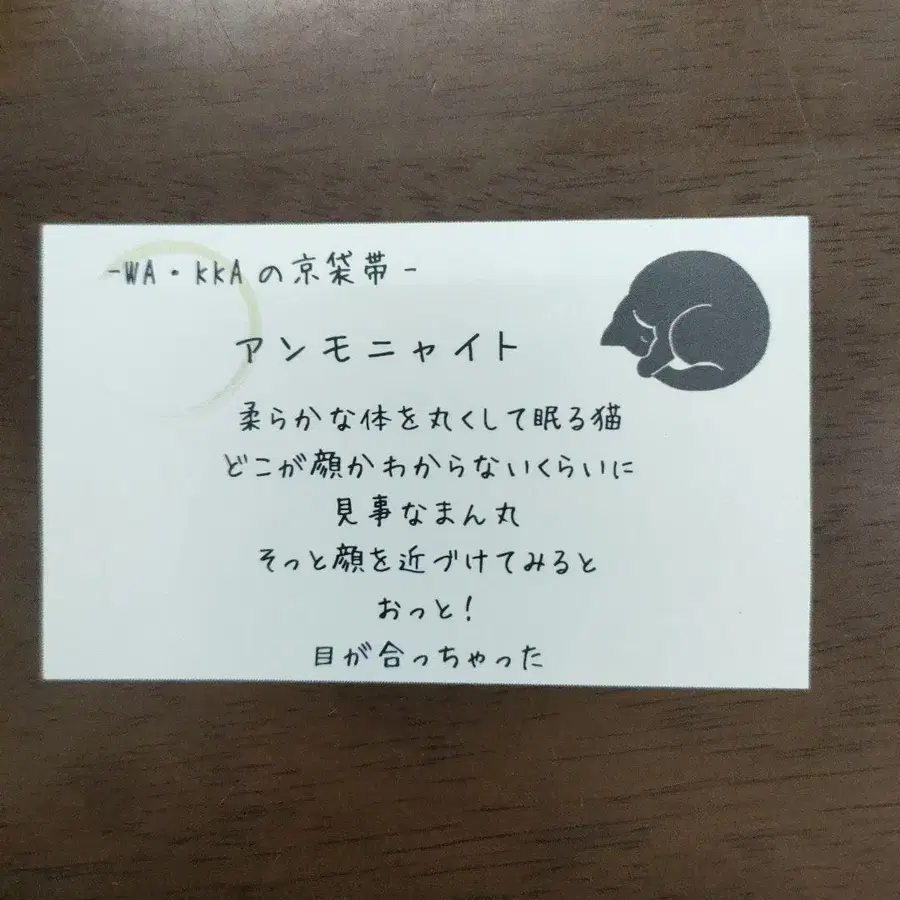 -WA・KKAの京袋帯-
アンモニャイト
柔らかな体を丸くして眠る猫
どこが顔かわからないくらいに
見事なまん丸
そっと顔を近づけてみると
おっと!
目が合っちゃった